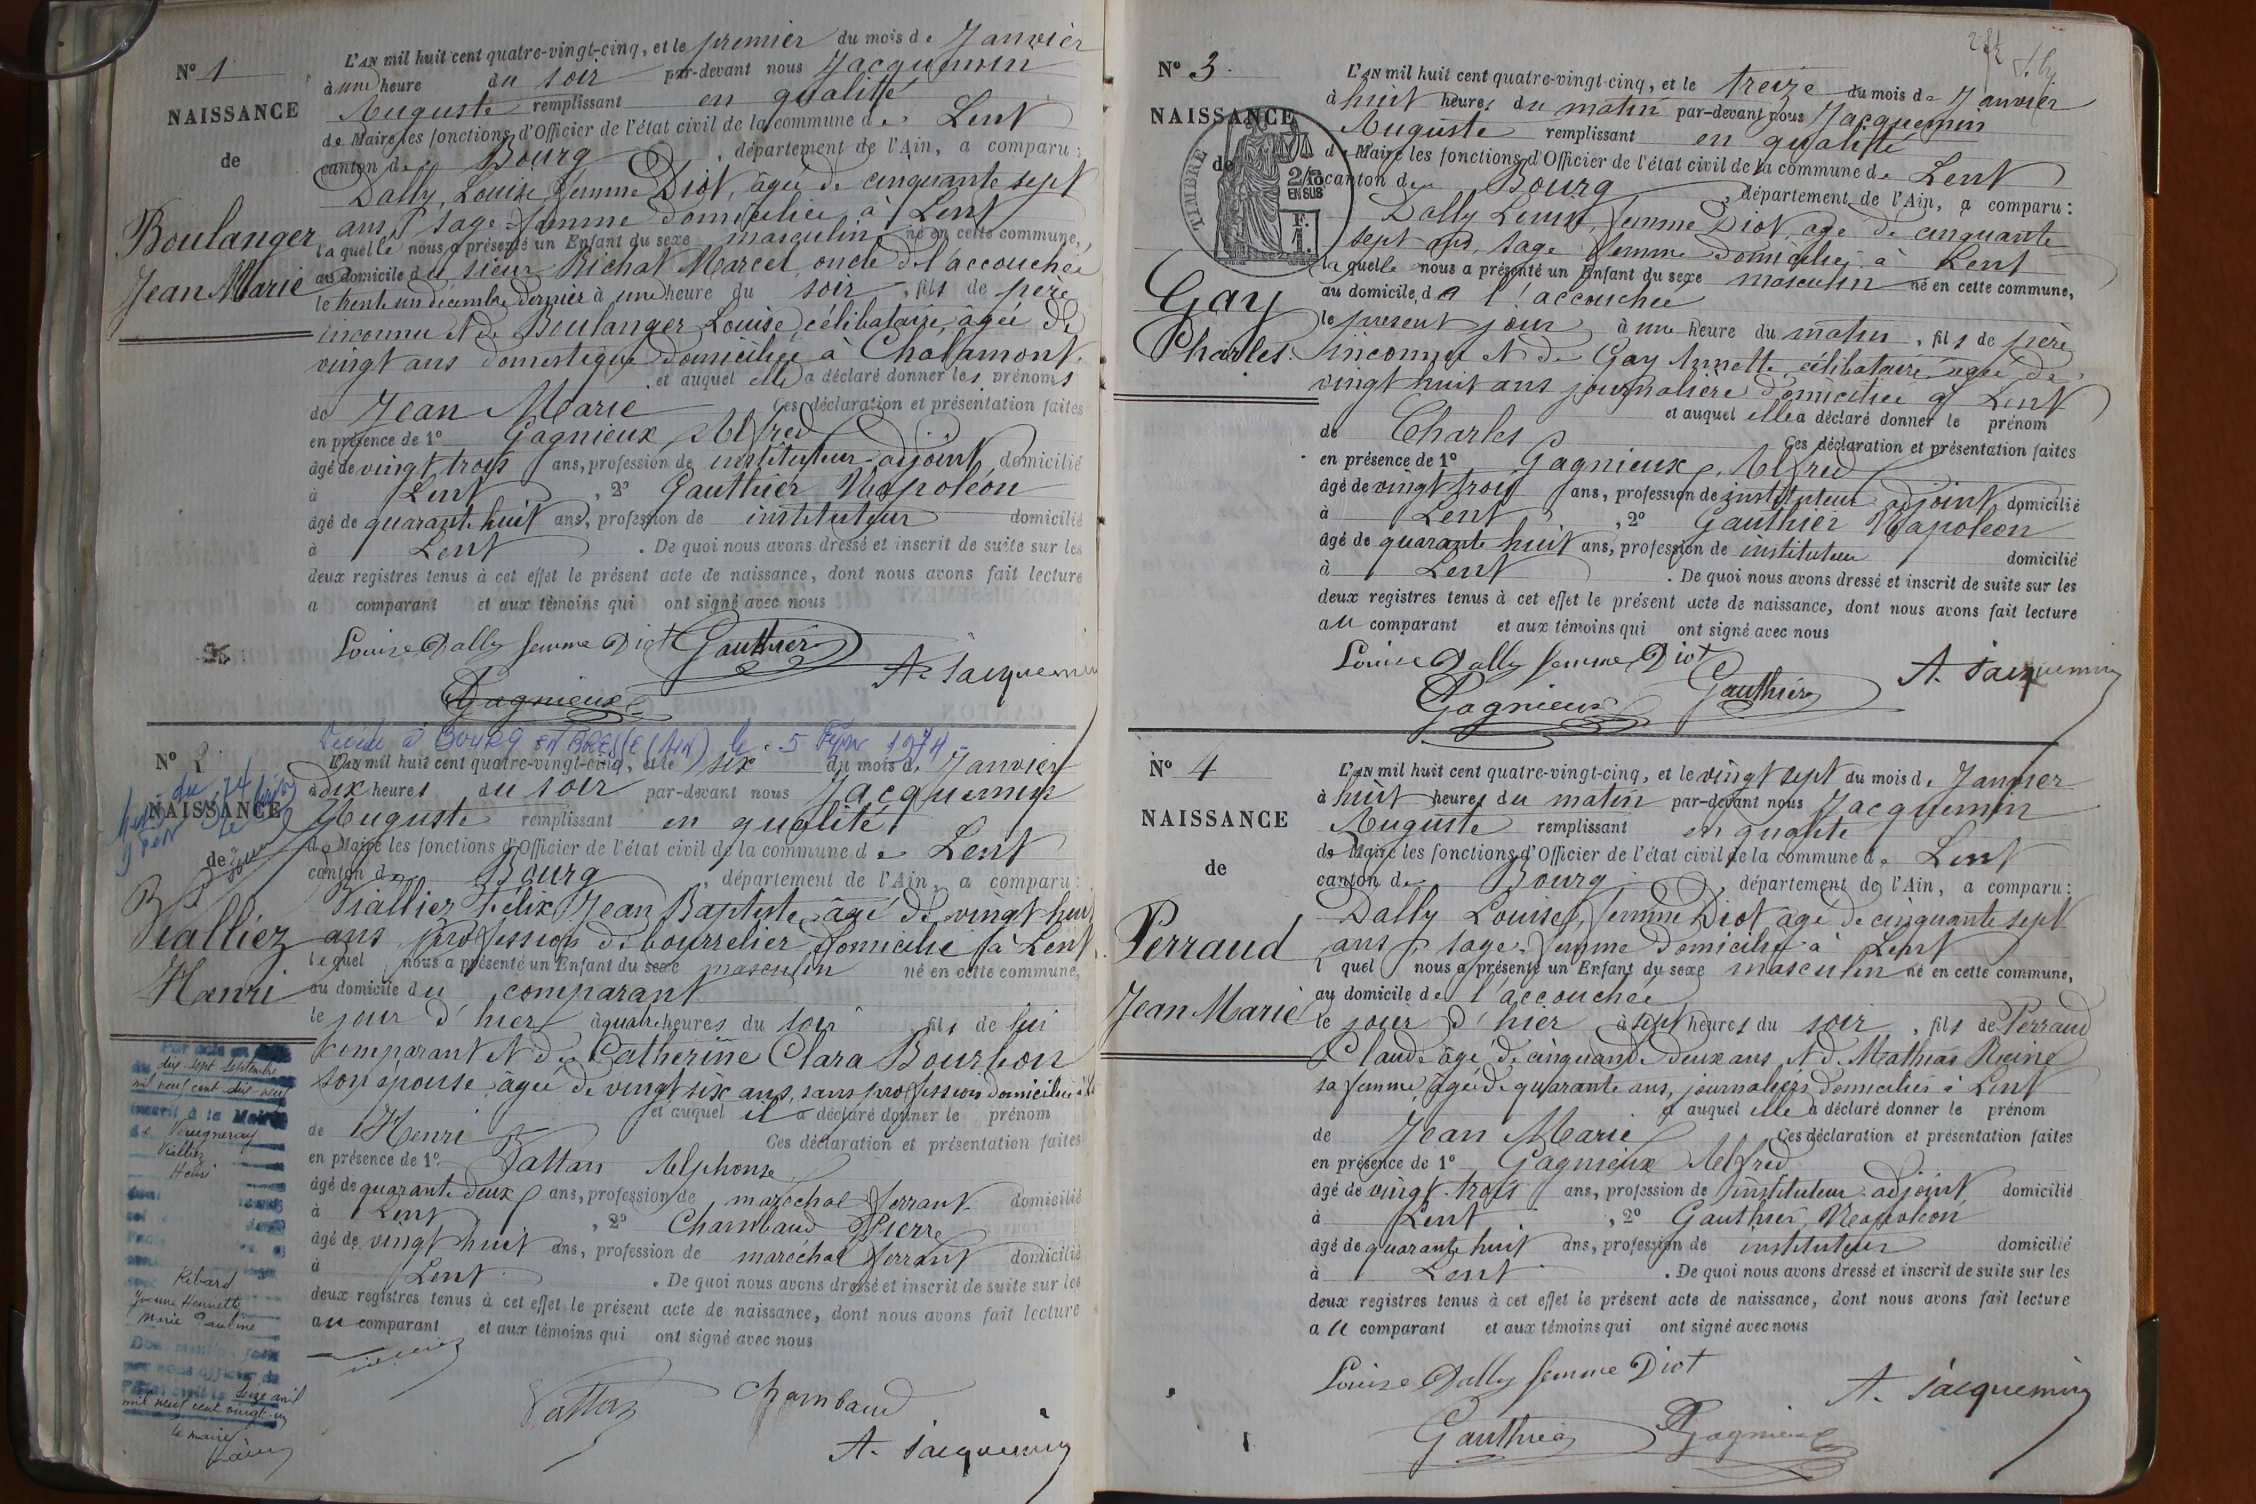 N° 1
NAISSANCE
de
Boulanger
Jean Marie
L'AN mil huit cent quatre-vingt-cinq, et le premier du mois de Janvier
à une heure du soir par-devant nous Jacquemin
Auguste remplissant en qualité
de Maire les fonctions d'Officier de l'état civil de la commune de Lent
canton de Bourg, département de l'Ain, a comparu:
Dally, Louise, femme Diot, âgée de cinquante sept
ans, sage-femme domiciliée à Lent
laquelle nous a présenté un Enfant du sexe masculin né en cette commune,
au domicile du sieur Richat Marcel, oncle de l'accouchée
le trente un décembre dernier à une heure du soir, fils de père
inconnu et de Boulanger Louise, célibataire, âgée de
vingt ans domestique domiciliée à Chalamont.
et auquel elle a déclaré donner les prénoms
de Jean Marie Ces déclaration et présentation faites
en présence de 1° Gagnieux, Alfred
âgé de vingt trois ans, profession de instituteur-adjoint domicilié
à Lent, 2° Gauthier Napoléon
âgé de quarante huit ans, profession de instituteur domicilié
à Lent. De quoi nous avons dressé et inscrit de suite sur les
deux registres tenus à cet effet le présent acte de naissance, dont nous avons fait lecture
a comparant et aux témoins qui ont signé avec nous
Louise Dally femme Diot Gauthier
A. Jacquemin
Gagnieux
à Bourg en Bresse (Ain) le 5 1974
N° 2
NAISSANCE
de
Vialliez
Henri
L'AN mil huit cent quatre-vingt-cinq, et le six du mois de Janvier
à dix heures du soir par-devant nous Jacquemin
Auguste remplissant en qualité
de Maire les fonctions d'Officier de l'état civil de la commune de Lent
canton de Bourg, département de l'Ain, a comparu:
Viallier Félix Jean Baptiste âgé de vingt huit
ans, profession de bourrelier domicilié à Lent
lequel nous a présenté un Enfant du sexe masculin né en cette commune,
au domicile du comparant
le jour d'hier à quatre heures du soir fils de lui
comparant et de Catherine Clara Bourbon
son épouse âgée de vingt six ans, sans profession domiciliée à
et auquel il a déclaré donner le prénom
de Henri Ces déclaration et présentation faites
en présence de 1° Alphonse
âgé de quarante deux ans, profession de maréchal ferrant domicilié
à Lent, 2° Chambaud Pierre
âgé de vingt huit ans, profession de maréchal ferrant domicilié
à Lent. De quoi nous avons dressé et inscrit de suite sur les
deux registres tenus à cet effet le présent acte de naissance, dont nous avons fait lecture
au comparant et aux témoins qui ont signé avec nous
Chambaud
A. Jacquemin
Par acte en
dix sept Septembre
mil neuf cent dix
inscrit à la Mairie
de Vaugneray
Vialliez
Henri
Yvonne Henriette
Marie Pauline
Dont mention
par nous officier de
l'état civil le seize avril
mil neuf cent vingt-un
Le maire
N° 3
NAISSANCE
de
Gay
Charles
TIMBRE
2/10
EN SUS
F.
1.
L'AN mil huit cent quatre-vingt-cinq, et le treize du mois de Janvier
à huit heures du matin par-devant nous Jacquemin
Auguste remplissant en qualité
de Maire les fonctions d'Officier de l'état civil de la commune de Lent
canton de Bourg, département de l'Ain, a comparu:
Dally Louise, femme Diot, âgé de cinquante
sept ans, sage femme domiciliée à Lent
laquelle nous a présenté un Enfant du sexe masculin né en cette commune,
au domicile de l'accouchée
le présent jour à une heure du matin, fils de père
inconnu et de Gay Annette, célibataire, âgée de
vingt huit ans journalière domiciliée à Lent
et auquel elle a déclaré donner le prénom
de Charles Ces déclaration et présentation faites
en présence de 1° Gagnieux, Alfred
âgé de vingt trois ans, profession de instituteur adjoint domicilié
à Lent, 2° Gauthier Napoléon
âgé de quarante huit ans, profession de instituteur domicilié
à Lent. De quoi nous avons dressé et inscrit de suite sur les
deux registres tenus à cet effet le présent acte de naissance, dont nous avons fait lecture
au comparant et aux témoins qui ont signé avec nous
Louise Dally femme Diot
Gagnieux Gauthier A. Jacquemin
N° 4
NAISSANCE
de
Perraud
Jean Marie
L'AN mil huit cent quatre-vingt-cinq, et le vingt sept du mois de Janvier
à huit heures du matin par-devant nous Jacquemin
Auguste remplissant en qualité
de Maire les fonctions d'Officier de l'état civil de la commune de Lent
canton de Bourg, département de l'Ain, a comparu:
Dally Louise, femme Diot âgé de cinquante sept
ans, sage-femme domiciliée à Lent
l quel nous a présenté un Enfant du sexe masculin né en cette commune,
au domicile de l'accouchée
le jour d'hier à sept heures du soir, fils de Perraud
Claude âgé de cinquante deux ans et de Mathias Reine
sa femme, âgée de quarante ans, journaliers domiciliés à Lent
et auquel elle a déclaré donner le prénom
de Jean Marie Ces déclaration et présentation faites
en présence de 1° Gagnieux Alfred
âgé de vingt-trois ans, profession de instituteur-adjoint domicilié
à Lent, 2° Gauthier, Napoléon
âgé de quarante huit ans, profession de instituteur domicilié
à Lent. De quoi nous avons dressé et inscrit de suite sur les
deux registres tenus à cet effet le présent acte de naissance, dont nous avons fait lecture
au comparant et aux témoins qui ont signé avec nous
Louise Dally femme Diot
A. Jacquemin
Gauthier Gagnieux